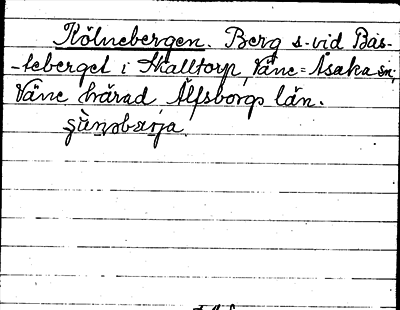 Kölnebergen. Berg s. vid Bas-
-teberget i Skalltorp, Väne=Åsaka sn,
Väne härad, Älfsborgs län.